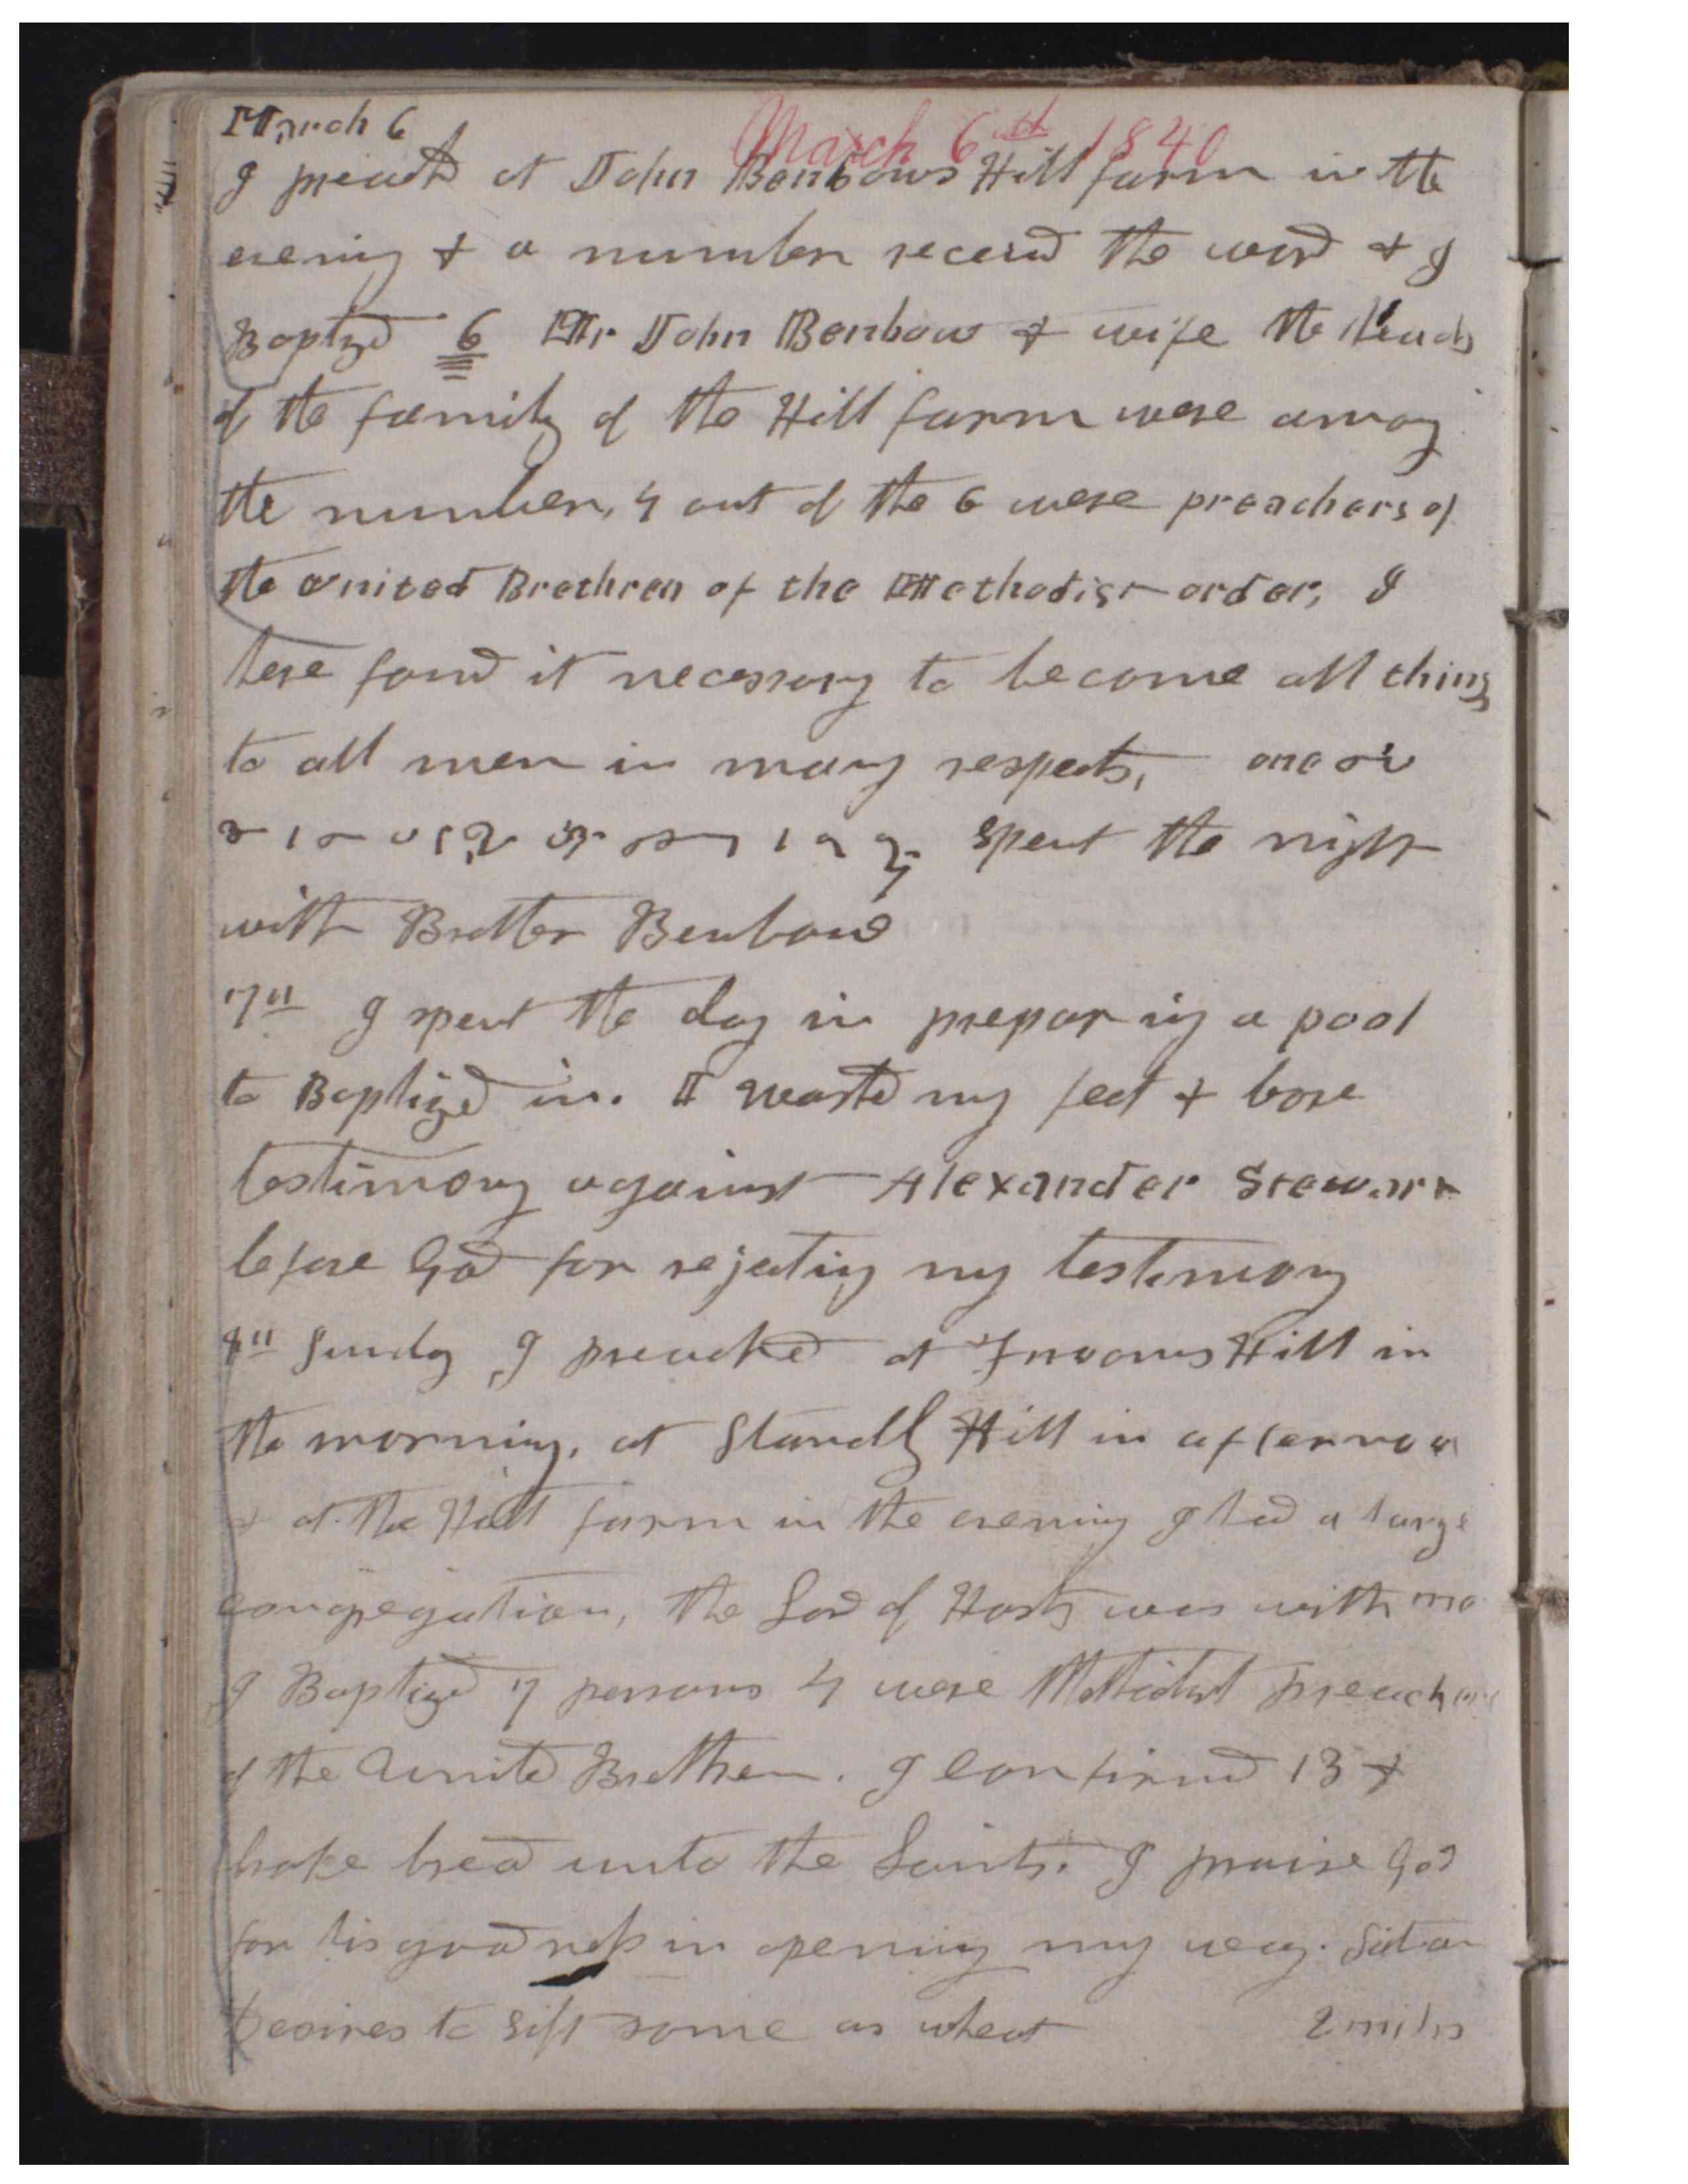 March 6
March 6th 1840
I preachd at John Benbows Hill farm in the
evening & a number receivd the word & I
Baptized 6 Mr John Benbow & wife the Heads
of the family of the Hill farm were among
the number, 4 out of the 6 were preachers of
the united Brethren of the Methodist order, I
here found it necessary to become all things
to all men in many respects,
spent the night
with Brother Benbow
7th I spent the day in preparing a pool
to Baptized in. I washed my feet & bore
testimony against Alexander Stewart
before God for rejecting my testimony
8th Sunday I preached at Frooms Hill in
the morning, at Standly Hill in afternoon
& at the Hill farm in the evening I had a large
congregation, the Lord of Hosts was with me
I Baptized 7 persons 4 were Methodist preachers
of the United Brethren. I confirmed 13 &
brake bread unto the Saints. I praise God
for his goodness in opening my way. Satan
desires to sift some as wheat 2 miles